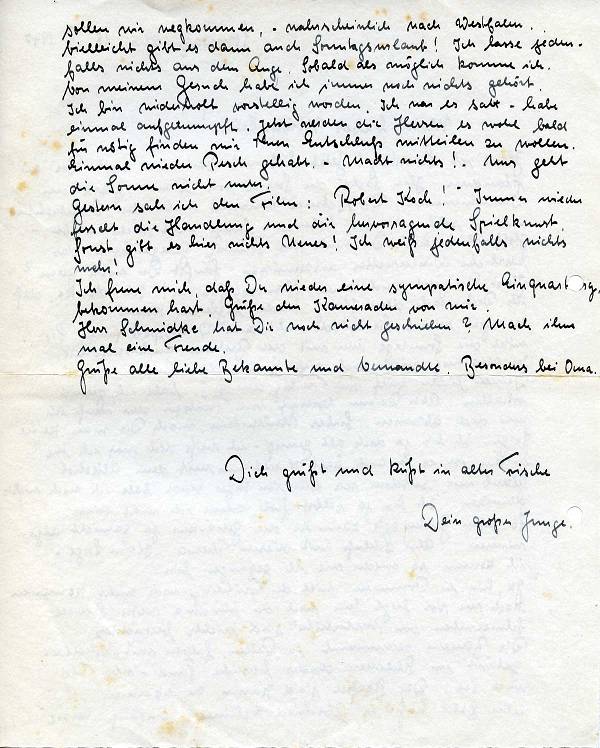 sollen wir wegkommen, - wahrscheinlich nach Westfalen.
Vielleicht gibt es dann auch Sonntagsurlaub! Ich lasse jeden-
falls nichts aus dem Auge. Sobald als möglich komme ich.
Von meinem Gesuch habe ich immer noch nichts gehört.
Ich bin wiederholt vorstellig worden. Ich war es satt - habe
einmal aufgetrumpft. Jetzt werden die Herren es wohl bald
für nötig finden mir Ihren Entschluß mitteilen zu wollen.
Einmal wieder Pech gehabt. - Macht nichts! - Uns geht
die Sonne nicht unter.
Gestern sah ich den Film: "Robert Koch!" Immer wieder
fesselt die Handlung und die hervorragende Spielkunst.
Sonst gibt es hier nichts Neues! Ich weiß jedenfalls nichts
mehr!
Ich freue mich, daß Du wieder eine sympatische Einquart
bekommen hast. Grüße den Kameraden von mir.
Herr Schmidke hat Dir noch nicht geschrieben? Mach ihm
mal eine Freude.
Grüße alle liebe Bekannte und Verwandte. Besonders bei Oma.
Dich grüßt und küßt in alter Frische
Dein großer Junge.